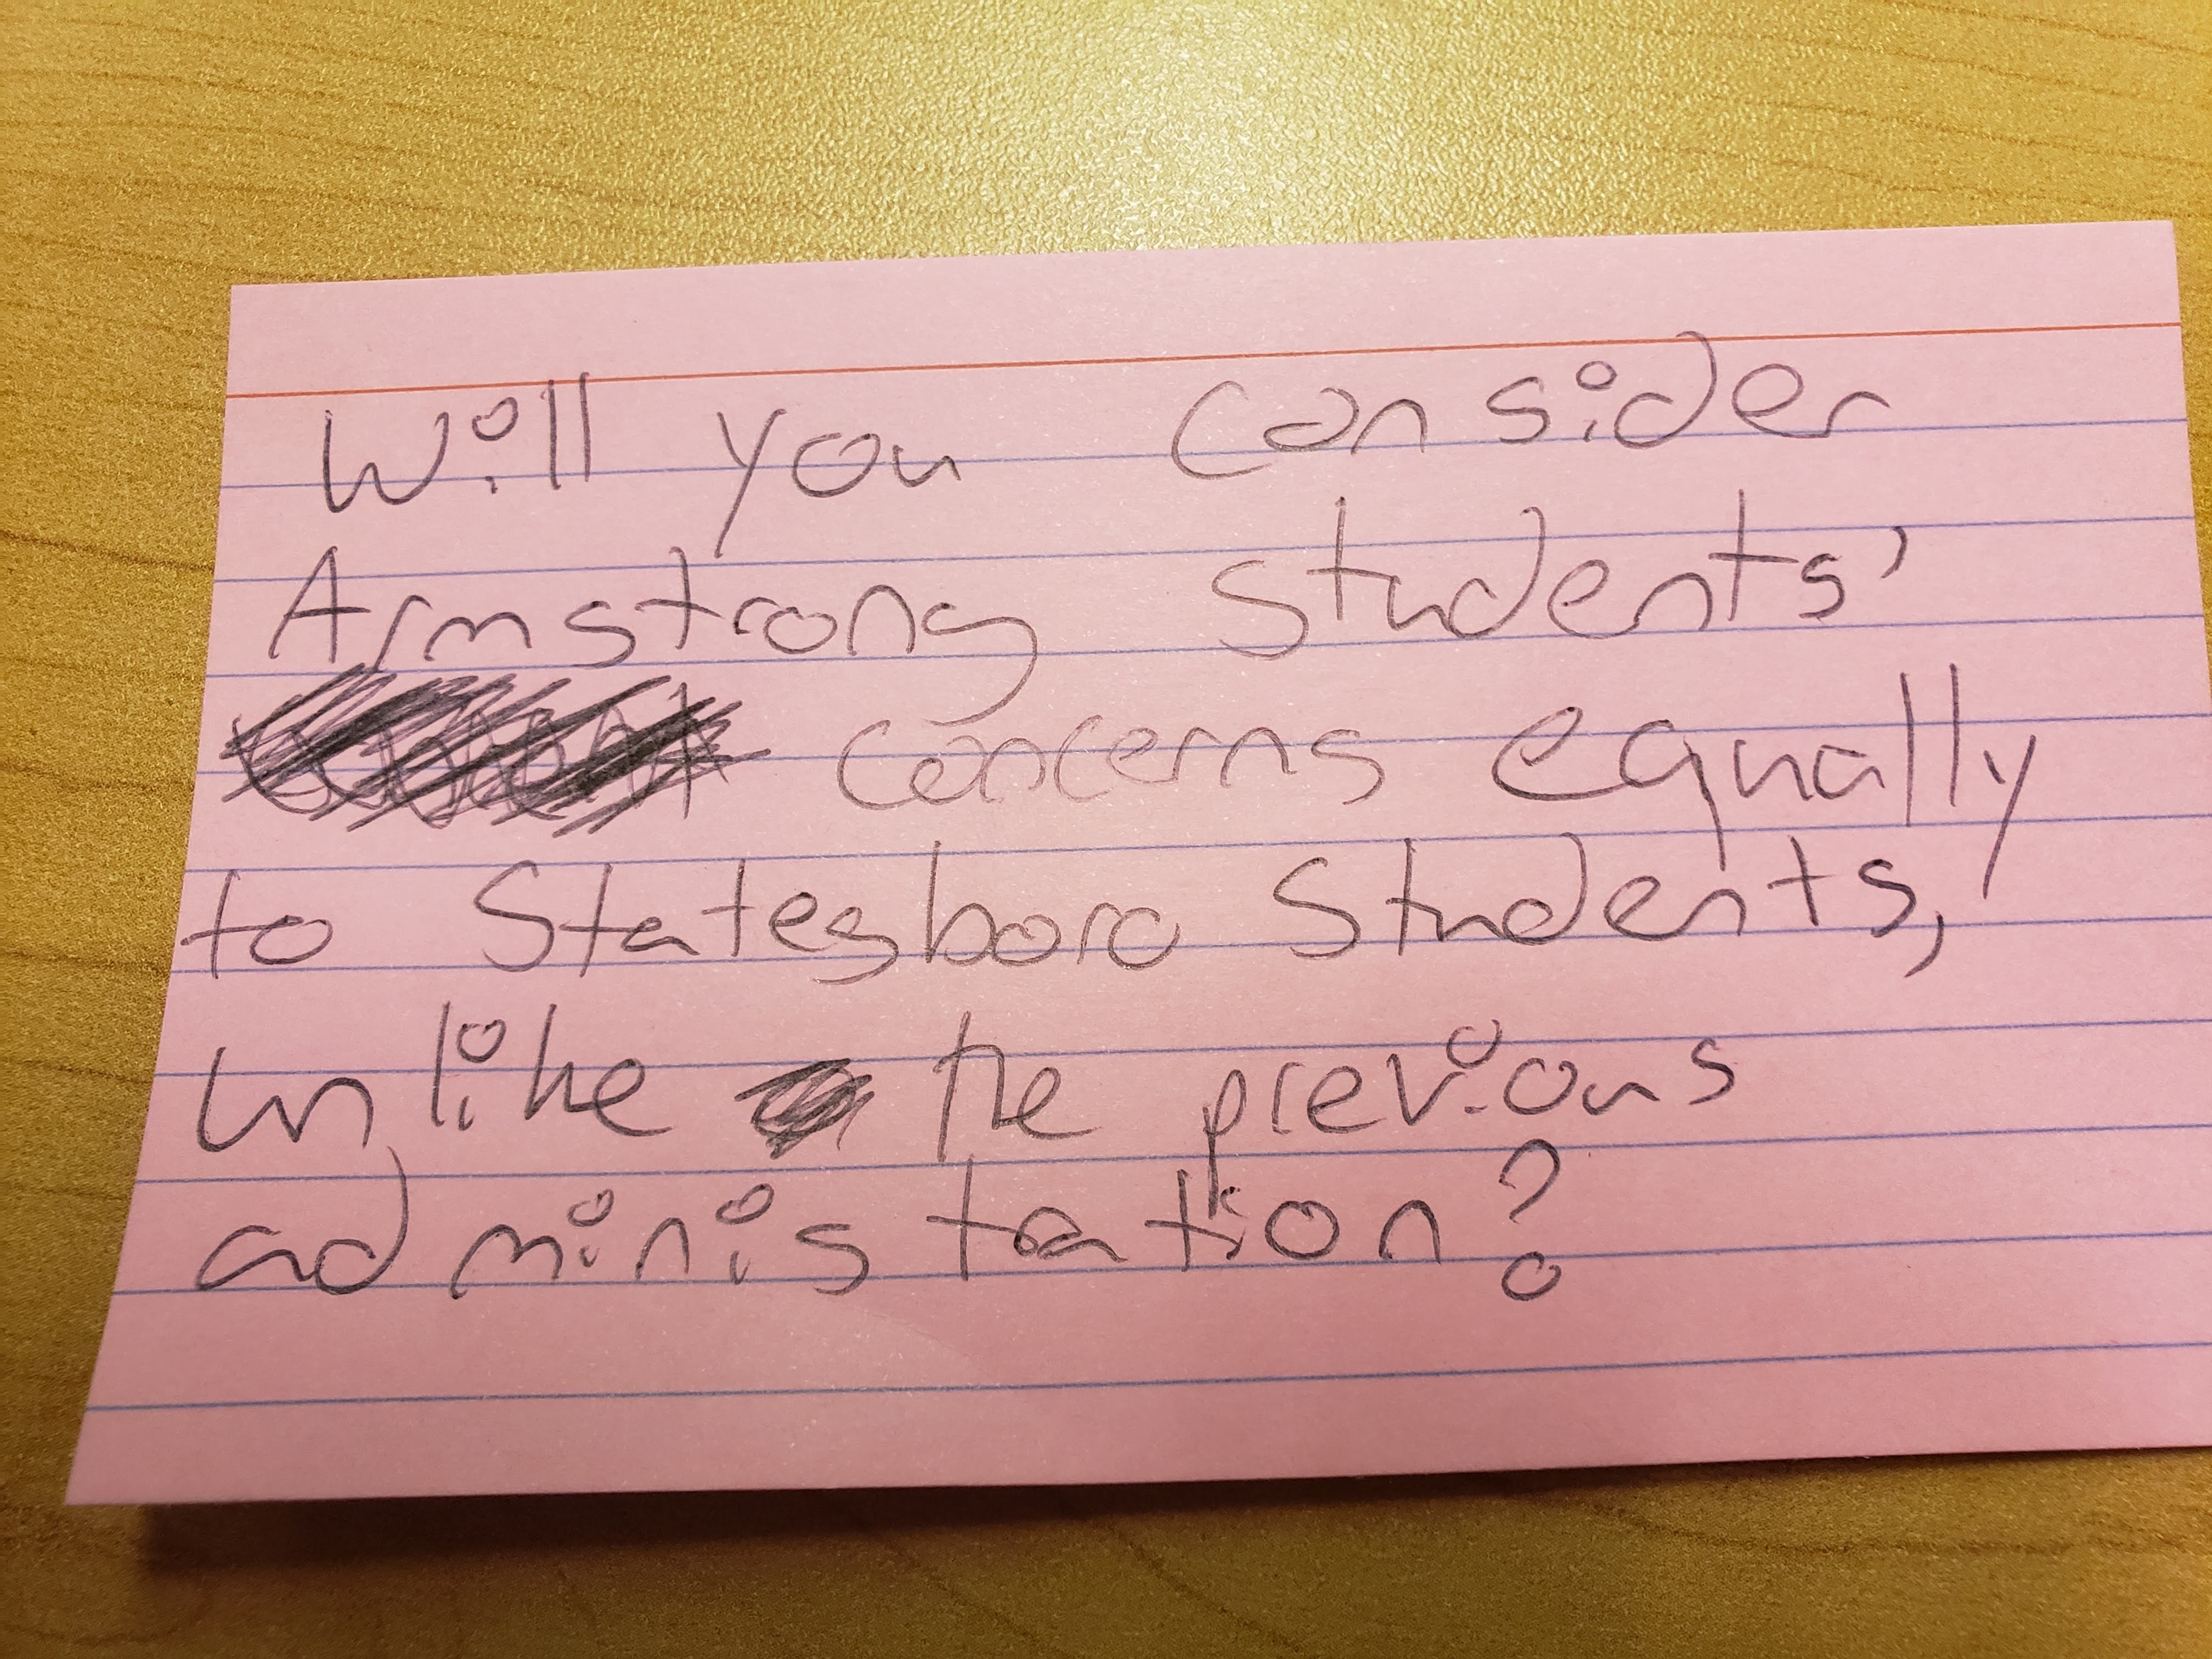 Will you consider
Armstrong students'
concerns equally
to Statesboro students,
unlike the previous
administration?